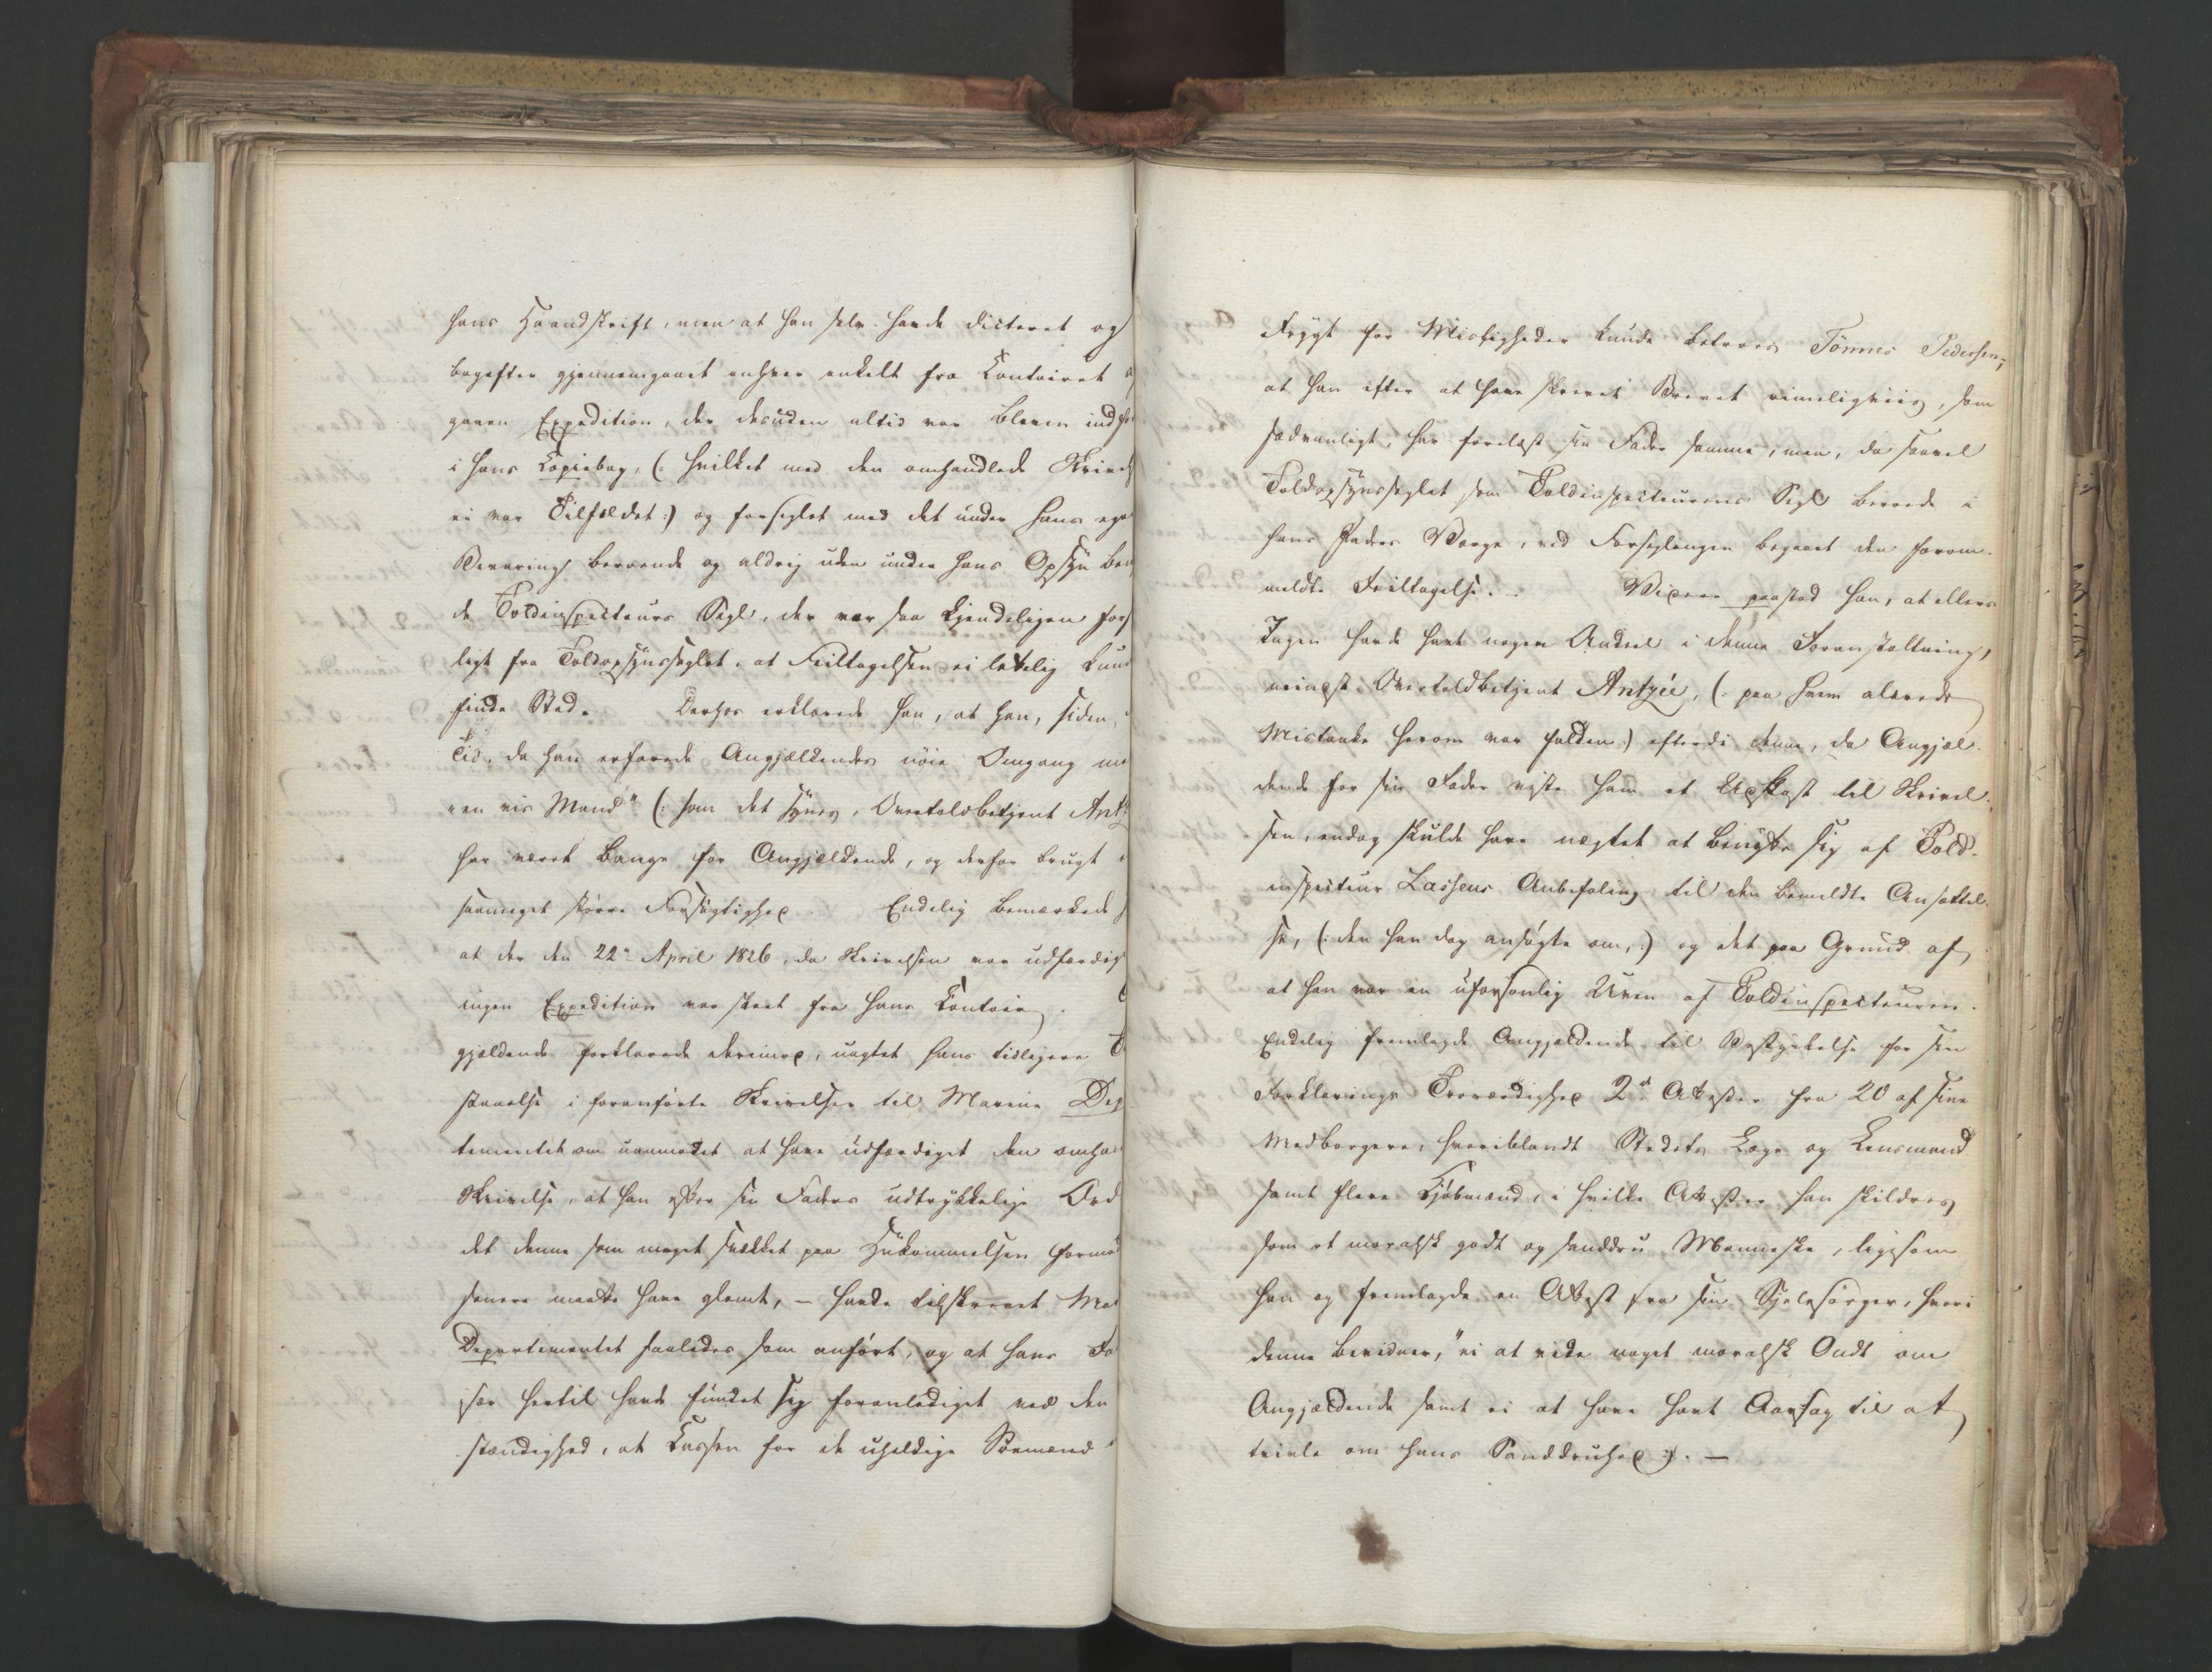 hans Haandskrift, men at han selv havde dicteret og
bagefter gjennemgaaet enhver enkelt fra Contoiret
gaaen Expedition, der desuden altid var bleven indfø
i hans Copiebog, (: hvilket med den omhandlede Skrivels
ei var Tilfældet :) og forseglet med det under hans egen
Bevaring beroende og aldrig uden under hans Opsyn
de Toldinspecteurs Segl, der var saa kjendeligen forsk
ligt fra Toldopsynsseglet, at Feiltagelsen ei letelig kund
finde Sted. Derhos erklærede han, at han, siden
Tid, da han erfarede Angjældendes nöie Omgang me
"en vis Mand" (: som det synes, Overtoldbetjent Antz
har været bange for Angjældende, og derfor brugt
saameget større Forsigtighed. Endelig bemærkede
at der den 22de April 1826, da Skrivelsen var udfærdig
ingen Expedition var skeet fra hans Contoir.
gjældende forklarede derimod, uagtet hans tidligere
staaelse i foranførte Skrivelse til Marine Dep
tementet om uanmodet at have udfærdiget den omhan
Skrivelse, at han efter sin Faders udtrykkelige Ord
det denne som meget svækket paa Hukommelsen formo
senere maatte have glemt, – havde tilskrevet Ma
Departementet saaledes som anført, og at hans Fa
især hertil havde fundet sig foranlediget ved den
stændighed, at Lassen for de uheldige Sømænd
Frygt for Misligheder kunde betroes Tönnes Pedersen,
at han efter at have skrevet Brevet rimeligviis, som
sædvanligt, har forelæst sin Fader samme, men, da saavel
Toldopsynsseglet som Toldinspecteurens Segl beroede i
hans Faders Værge, ved Forseglingen begaaet den forom
meldte Feiltagelse. Videre paastod han, at ellers
Ingen havde havt nogen Andeel i denne Foranstaltning,
mindst Overtoldbetjent Antzée, (: paa hvem allerede
Mistanke herom var falden :) efterdi denne, da Angjæl
dende for sin Fader viste ham et Udkast til Skrivel
sen, endog skulde have nægtet at benytte sig af Told
inspecteur Lassens Anbefaling til den bemeldte Ansættel
se, (: den han dog ansøgte om, :) og det paa Grund af
at han var en uforsonlig Uven af Toldinspecteuren.
Endelig fremlagde Angjældende til Bestyrkelse for sin
Forklarings Troværdighed 2de Attester fra 20 af sine
Medborgere, hvoriblandt Stedets Læge og Lensmand
samt flere Kjøbmænd, i hvilke Attester han skildres
som et moralsk godt og sanddru Menneske, ligesom
han og fremlagde en Attest fra sin Sjelesørger, hvori
denne bevidner, "ei at vide noget moralsk Ondt om
Angjældende samt ei at have havt Aarsag til at
tvivle om hans Sanddruhed". –